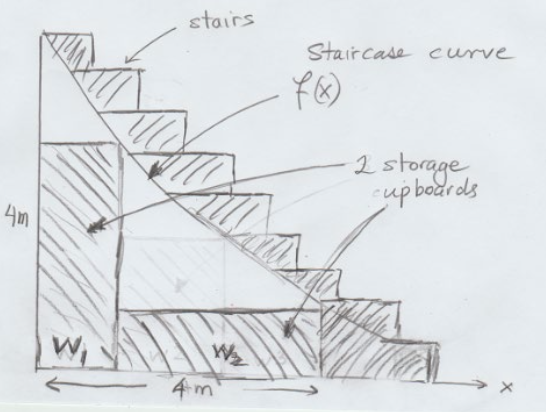 stairs
Staircase curve
f(x)
2 storage
cupboards
4m
W₁
W₂
4 m
x